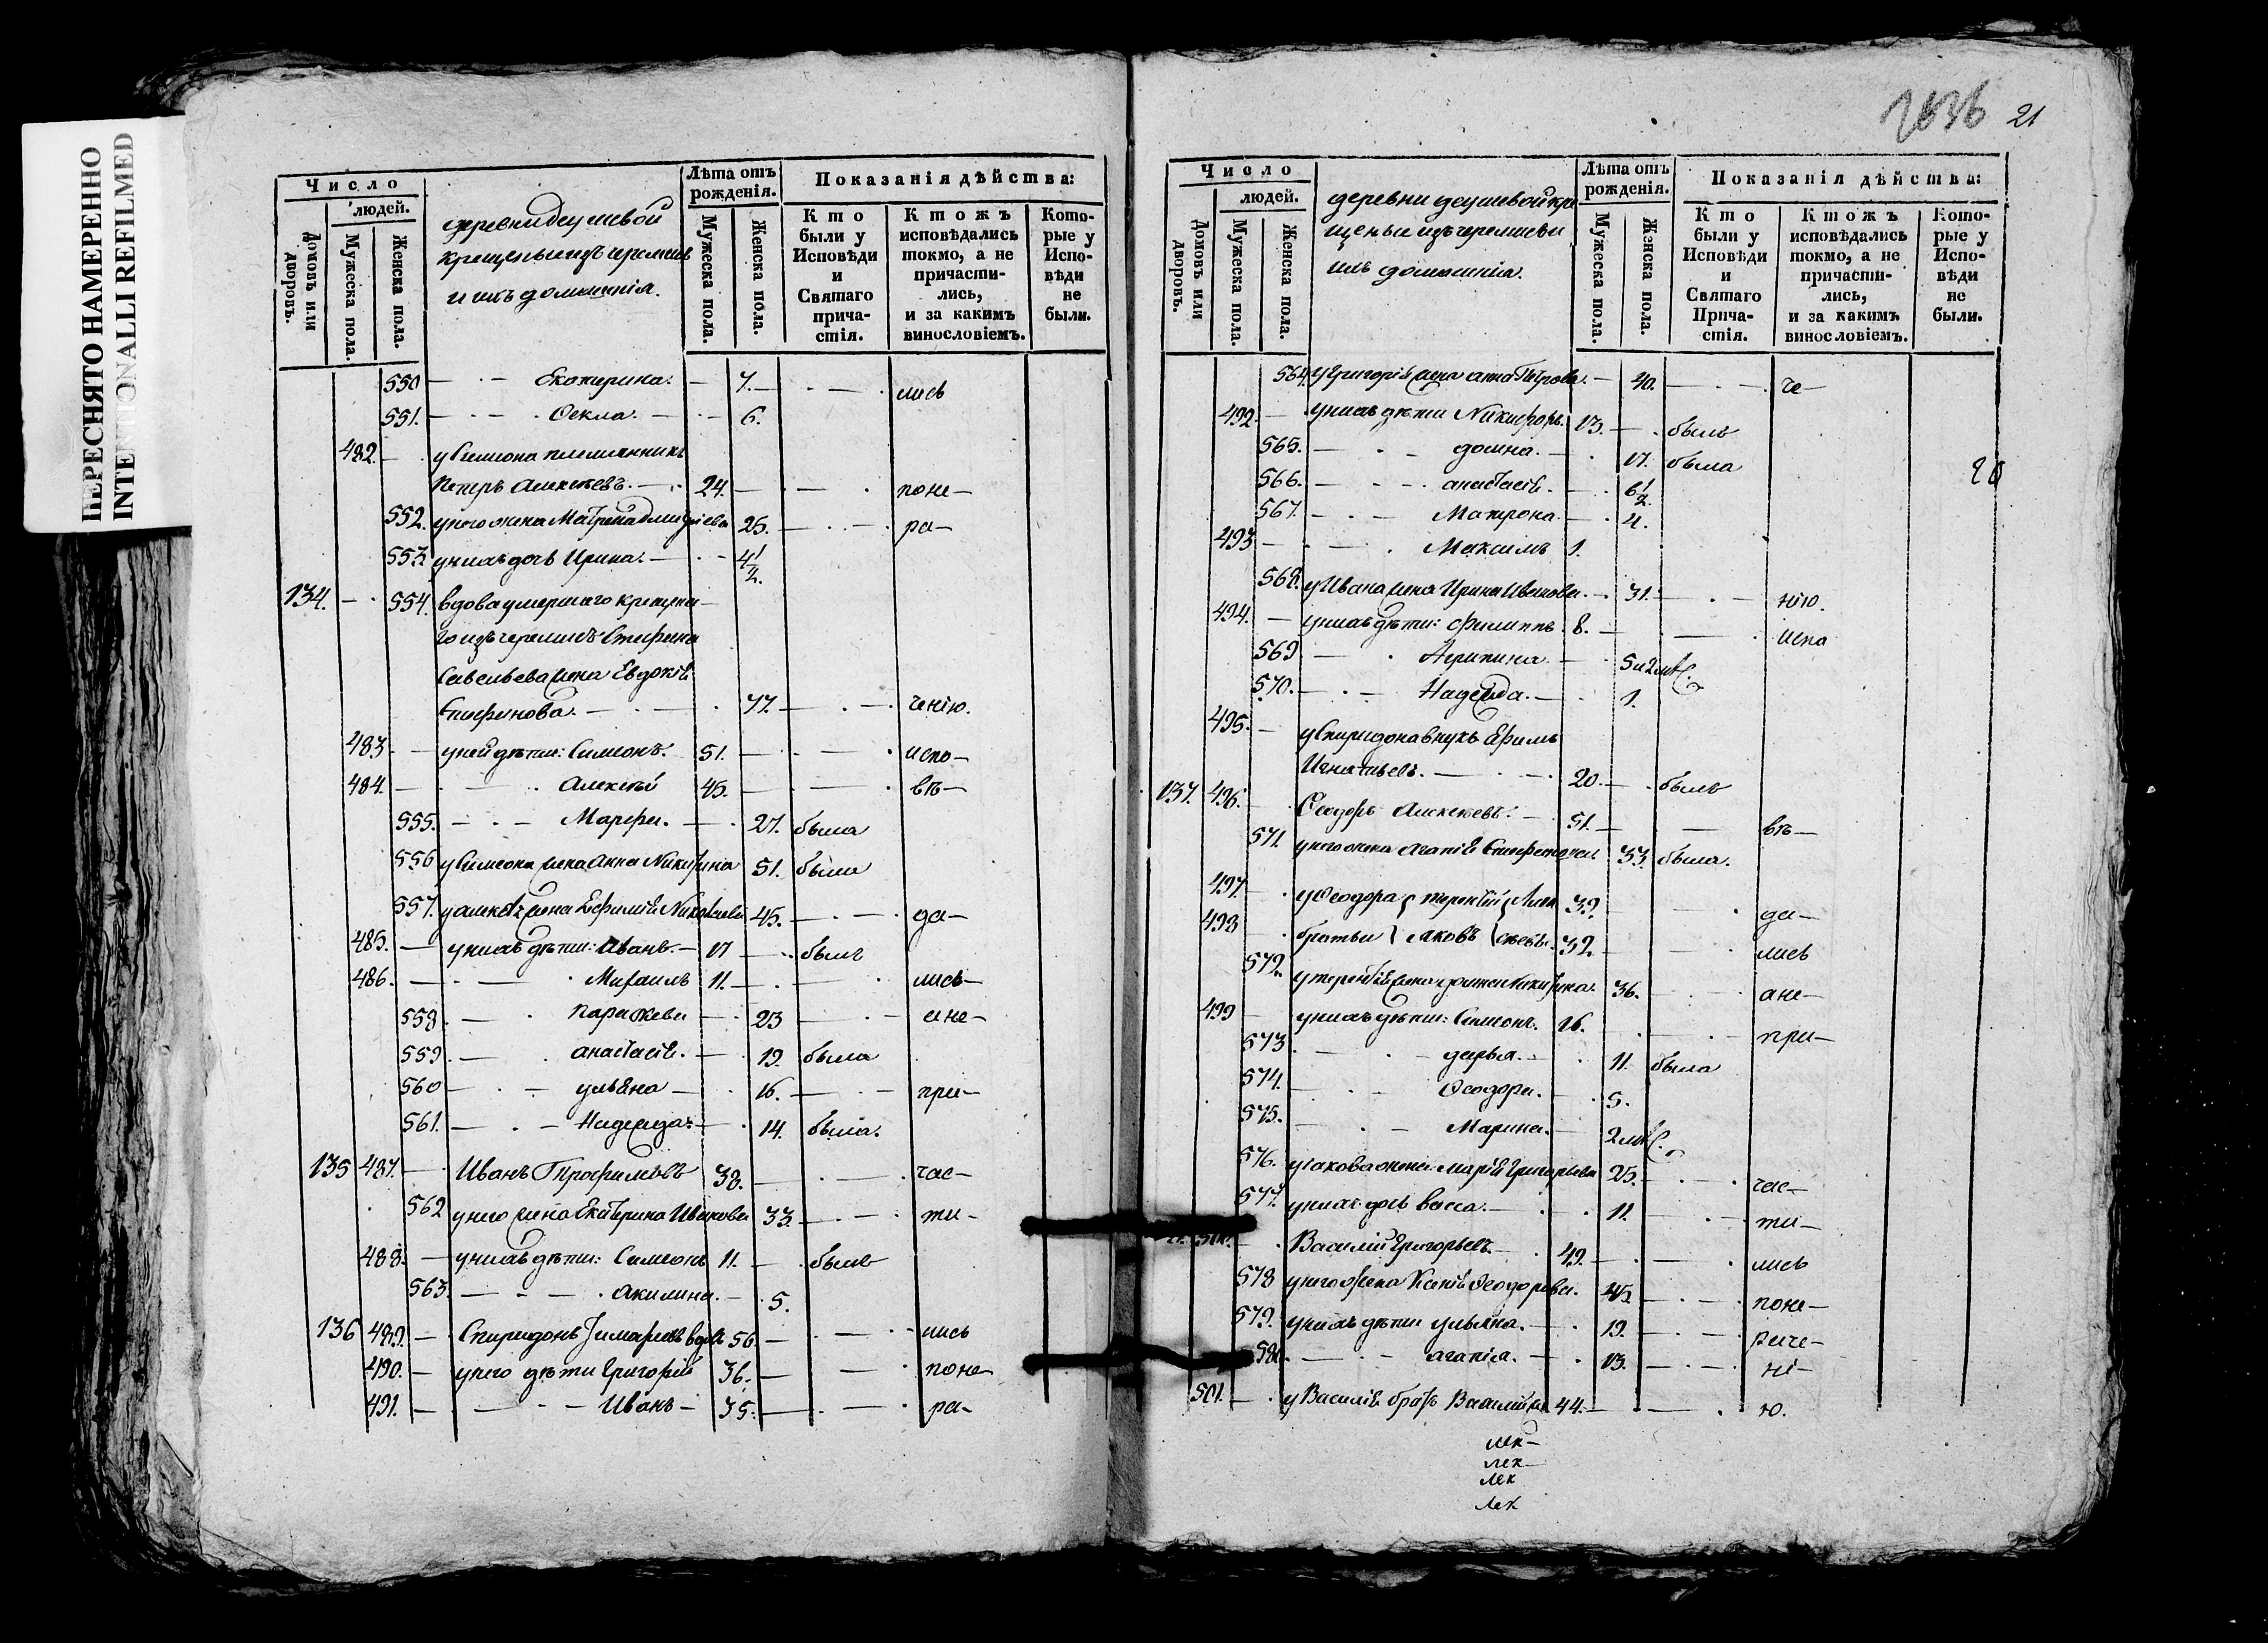 ПЕРЕСНЯТО НАМЕРЕННО
INTENTIONALLI REFILMED
Число
людей.
Домовъ или дворовъ.
Мужеска пола.
Женска пола.
крещеныи изъ черемисъ
и ихъ домашнія.
Лѣта отъ рожденія.
Мужеска пола.
Женска пола.
Показанія дѣйства:
Кто были у Исповѣди и Святаго причастія.
Ктожъ исповѣдались токмо, а не причастились, и за какимъ винословіемъ.
Которые у Исповѣди не были.
550 — Екатерина. — 7. — лись
551. — Ѳекла. — 6.
482. — у Симеона племянникъ
Петръ Алексѣевъ. — 24. — поне—
552. у него жена Матрена Дмитріева 25. — ра—
553. у нихъ дочь Ирина. — 4 1/2.
134. — 554. вдова умершаго крещена—
го изъ черемисъ Стефана
Савельева жена Евдокія
Епифанова. — 77. — ченію.
483. — у ней дѣти: Симеонъ. 51. — испо—
484. — Алексѣй 45. — вѣ—
555. — Марфа. — 27. была
556 у Симеона жена Анна Никитина 51. была
557. у Алексѣя жена Евфимія Николаева 45. — да—
485. — у нихъ дѣти: Иванъ. — 17 — былъ
486. — Михаилъ 11. — лись—
558. — Параскева — 23 — а не—
559. — Анастасія. — 19. была
560 — Ульяна — 16. — при—
561. — Надежда. — 14. была.
135 487. — Иванъ Трофимовъ 38. — час—
562 у него жена Екатерина Иванова 33. — ти—
488. — у нихъ дѣти: Симеонъ 11. — былъ
563. — Акилина. — 5.
136 489. — Спиридонъ вдовъ 56. — лись
490. — у него дѣти Григорій 36. — поне—
491. — Иванъ — 35. — ра—
21
Число
людей.
Домовъ или дворовъ.
Мужеска пола.
Женска пола.
деревни кре
щеныи изъ черемисъ и
ихъ домашнія.
Лѣта отъ рожденія.
Мужеска пола.
Женска пола.
Показанія дѣйства:
Кто были у Исповѣди и Святаго Причастія.
Ктожъ исповѣдались токмо, а не причастились, и за какимъ винословіемъ.
Которые у Исповѣди не были.
564. у Григорія жена Анна Петрова. — 40. — че—
492. — у нихъ дѣти Никифоръ. 13. — былъ
565. — Домна. — 17. была
566. — Анастасія. — 6 1/2
567. — Матрона. — 4.
493 — Максимъ 1.
568. у Ивана жена Ирина Иванова. — 31. — нію.
494. — у нихъ дѣти: Филиппъ. 8. — испо
569 — Агрипина. — 5 и 2 мѣс.
570. — Надежда. — 1.
495. — у Спиридона внукъ Ефимъ
Игнатьевъ. — 20. — былъ
137. 496. Ѳеодоръ Алексѣевъ. — 51. — вѣ—
571. у него жена Агапія Епифанова. 33. была.
497. у Ѳеодора Терентій Алек 39. — да—
498 братьи Іаковъ сѣевы. 32. — лись
572. у Терентія жена Никитина. 36. — а не—
499 у нихъ дѣти: Симеонъ. 16. — при—
573 — Дарья. — 11. была
574. — Ѳеодора. — 5.
575. — Марина. — 2 мѣс.
576. у Іакова жена Марія Григорьева 25. — час—
577. у нихъ дочь Васса. — 11. — ти—
500. Василій Григорьевъ. — 49. — лись
578 у него жена Ксенія Ѳеодорова. 45. — поне—
579. у нихъ дѣти Ульяна. — 19. — раче—
580. — Агапія. — 13. — ні—
501. — у Василія братъ Василій же 44. — ю.
лек—
лек—
лек
лек